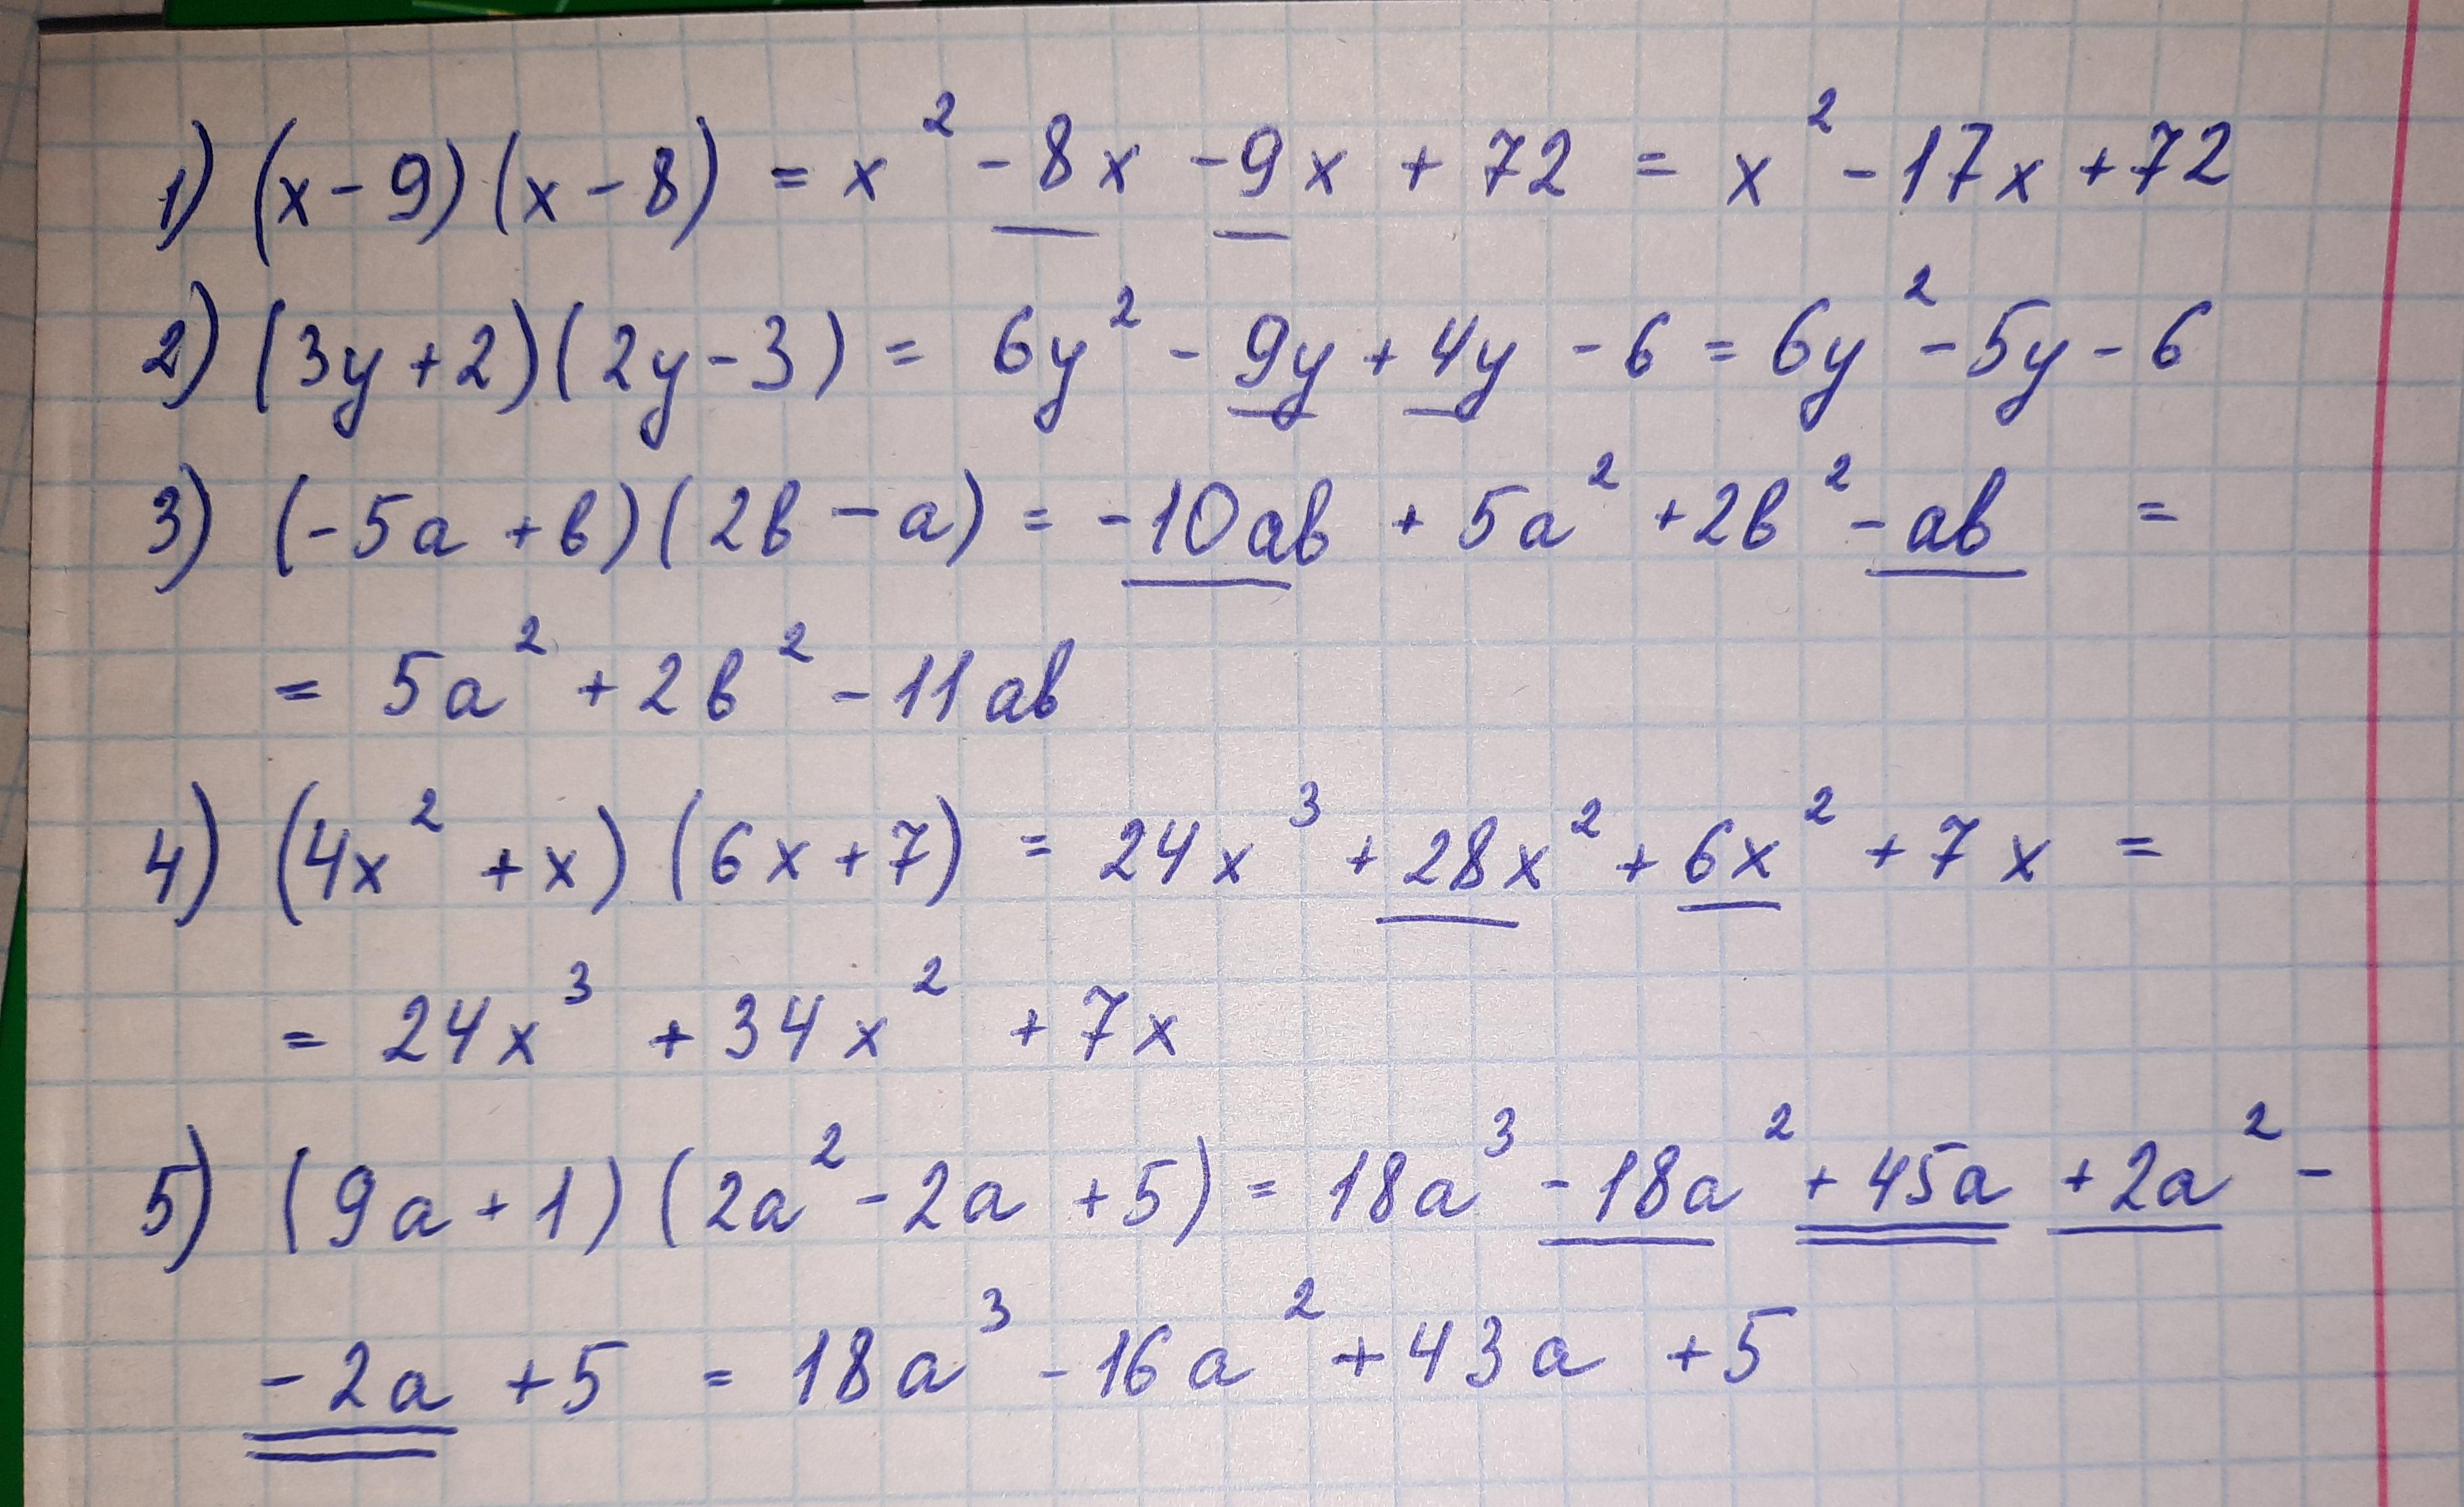 1) (x - 9)(x - 8) = x² - 8x - 9x + 72 = x² - 17x + 72
2) (3y + 2)(2y - 3) = 6y² - 9y + 4y - 6 = 6y² - 5y - 6
3) (-5a + b)(2b - a) = -10ab + 5a² + 2b² - ab =
= 5a² + 2b² - 11ab
4) (4x² + x)(6x + 7) = 24x³ + 28x² + 6x² + 7x =
= 24x³ + 34x² + 7x
5) (9a + 1)(2a² - 2a + 5) = 18a³ - 18a² + 45a + 2a² -
- 2a + 5 = 18a³ - 16a² + 43a + 5